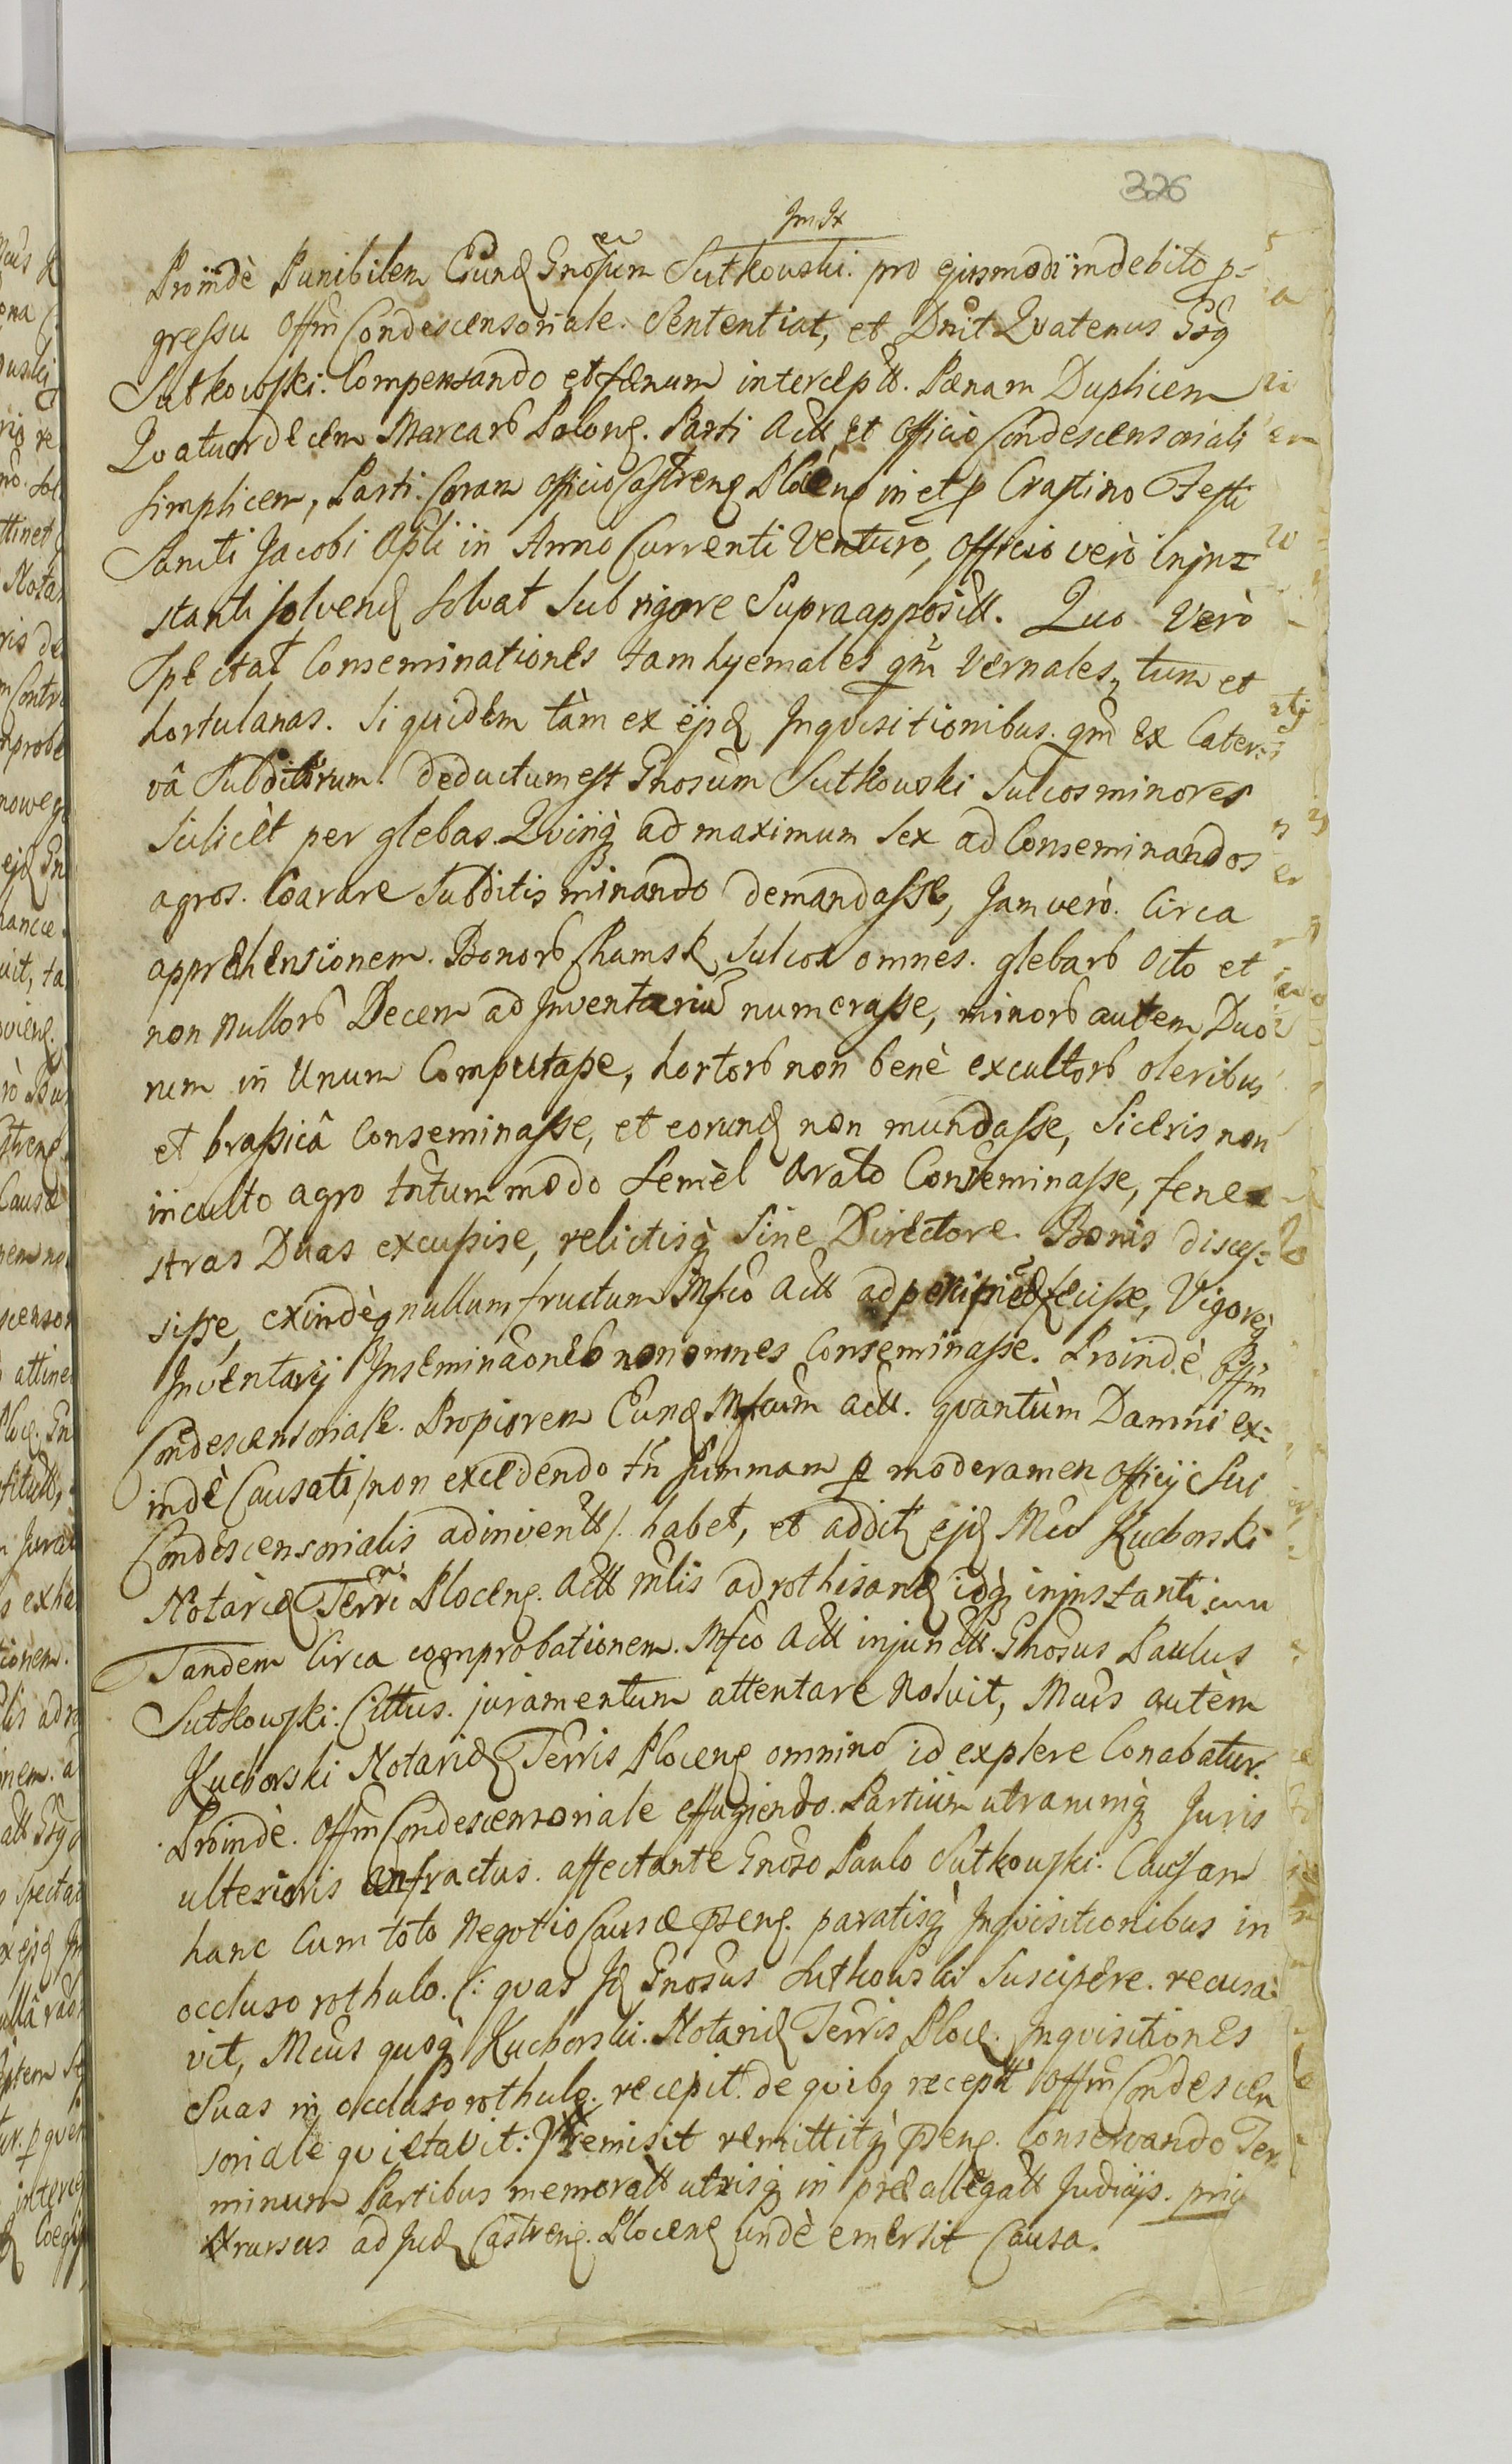 326
Proindè Punibilem Eund Gnosum Sutkowski. pro ejusmodi indebito p-
gressu Offm Condescensoriale. Sententiat, et Dnit Qvatenus Gsg
Sutkowski. Compensando et fænum interceptt. Pænam Duplicem
Qvatuordecem Marcarb Polong. Parti Actt et Officio Condescensoriali
Simplicem, Parti. Coram Officio Castreng Ploceng in et p Crastino Festi
Sancti Jacobi Apli in Anno Currenti Venturo, Officio verò in jn-
stanti solvend Solvat Sub rigore Supraapposítt. Quo Verò
Spectat Conseminationes tam hyemales qm Vernales, tum et
hortulanas. Siquidem tàm ex ejsd Inqvisitionibus. qm ex Cater-
vâ Subditorum. deductum est Gnosum Sutkowski Sulcos minores
Scilicèt per glebas Qvinq ad maximum Sex ad Conseminandos
agros. Coarare Subditis minando demandasse, Jam verò. Circa
apprehensionem. Bonorb Chamsk Sulcos omnes. glebarb Octo et
non nullorb Decem ad Inventariu numerasse, minorb autem Duo
rum in Unum Computasse, hortorb non benè excultorb oleribus
et brassicâ Conseminasse, et eorund non mundasse, Siceris non
inculto agro tntummodo Semèl Arato Conseminasse, fene-
stras Duas excussise, relictisq Sine Directore. Bonis disces-
sisse, exindèq nullum fructum Mfco Actt ad percipiend fecisse, Vigoreq
Inventarij Inseminaoneb non omnes Conseminasse. Proindè Offm
Condescensoriale. Propiorem Eund Mfcum Actt. qvantùm Damni ex-
indè Causati /non excedendo tn Summam p moderamen Officij Sui
Condescensorialis adinventt/. habet, et addit ejd Mco Kuchorski
Notario Terri Ploceng. Actt mlis ad rothisand idq in jnstanti
Tandem Circa comprobationem. Mfco Actt injunctt. Gnosus Paulus
Sutkowski. Cittus. juramentum attentare Noluit, Mcus autèm
Kuchorski Notarid Terris Ploceng omnino id explere Conabatur.
Proindè. Offm Condescensoriale effugiendo. Partium utrarumq Juris
ulterioris anfractus. affectante Gnoso Paulo Sutkowski. Causam
hanc Cum toto Negotio Causæ Pseng. paratisq Inqvisitionibus in
occluso rothulo. (: quas Jd Gnosus Sutkowski Suscipere. recusa-
vit, Mcus quoq Kuchorski. Notarid Terris Ploce. Inqvisitiones
Suas in occluso rothulo. recepit. de quibq receptt Offm Condescen
soriale qvietavit:) remisit remittitq Pseng. Conservando Ter-
minum Partibus memoratt utrisq in præallegatt Judicijs. priq
rursus ad Jud Castreng. Ploceng undè emersit Causa.